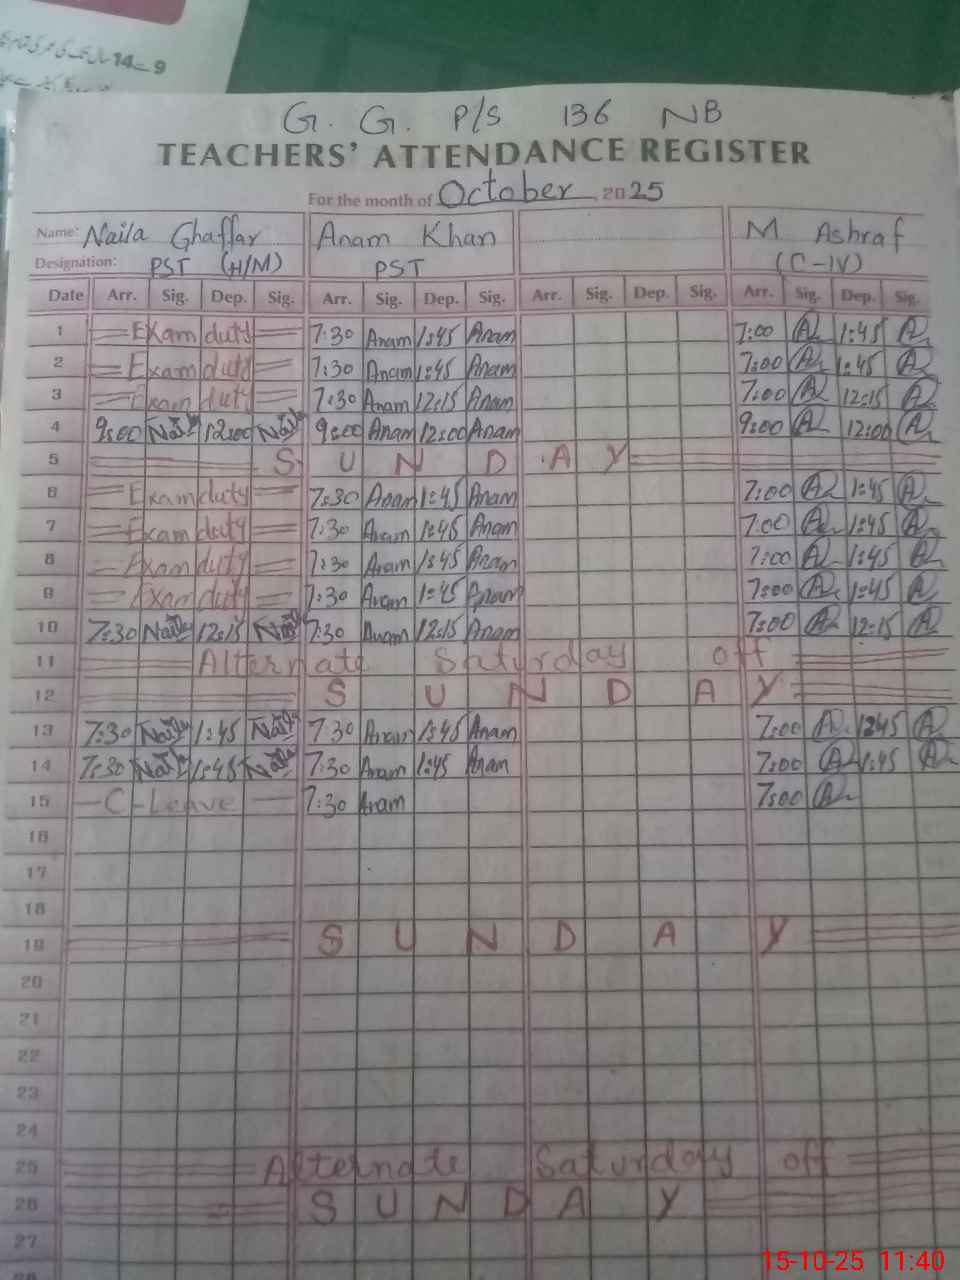 9 سے 14 سال تک کی عمر کی تمام
G. G. P/S 136 NB
TEACHERS' ATTENDANCE REGISTER
For the month of October, 2025
Name: Naila Ghaffar Anam Khan M Ashraf
Designation: PST (H/M) PST (C-IV)
Date Arr. Sig. Dep. Sig. Arr. Sig. Dep. Sig. Arr. Sig. Dep. Sig. Arr. Sig. Dep. Sig.
1 Exam duty 7:30 Anam 1:45 Anam 7:00 1:45
2 Exam duty 7:30 Anam 1:45 Anam 7:00 1:45
3 Exam duty 7:30 Anam 12:15 Anam 7:00 12:15
4 9:00 Naila 12:00 Naila 9:00 Anam 12:00 Anam 9:00 12:00
5 S U N D A Y
6 Exam duty 7:30 Anam 1:45 Anam 7:00 1:45
7 Exam duty 7:30 Anam 1:45 Anam 7:00 1:45
8 Exam duty 7:30 Anam 1:45 Anam 7:00 1:45
9 Exam duty 7:30 Anam 1:45 Anam 7:00 1:45
10 7:30 Naila 12:15 Naila 7:30 Anam 12:15 Anam 7:00 12:15
11 Alternate Saturday off
12 S U N D A Y
13 7:30 Naila 1:45 Naila 7:30 Anam 1:45 Anam 7:00 1:45
14 7:30 Naila 1:45 Naila 7:30 Anam 1:45 Anam 7:00 1:45
15 C-Leave 7:30 Anam 7:00
16
17
18
19 S U N D A Y
20
21
22
23
24
25 Alternate Saturday off
26 S U N D A Y
27
15-10-25 11:40